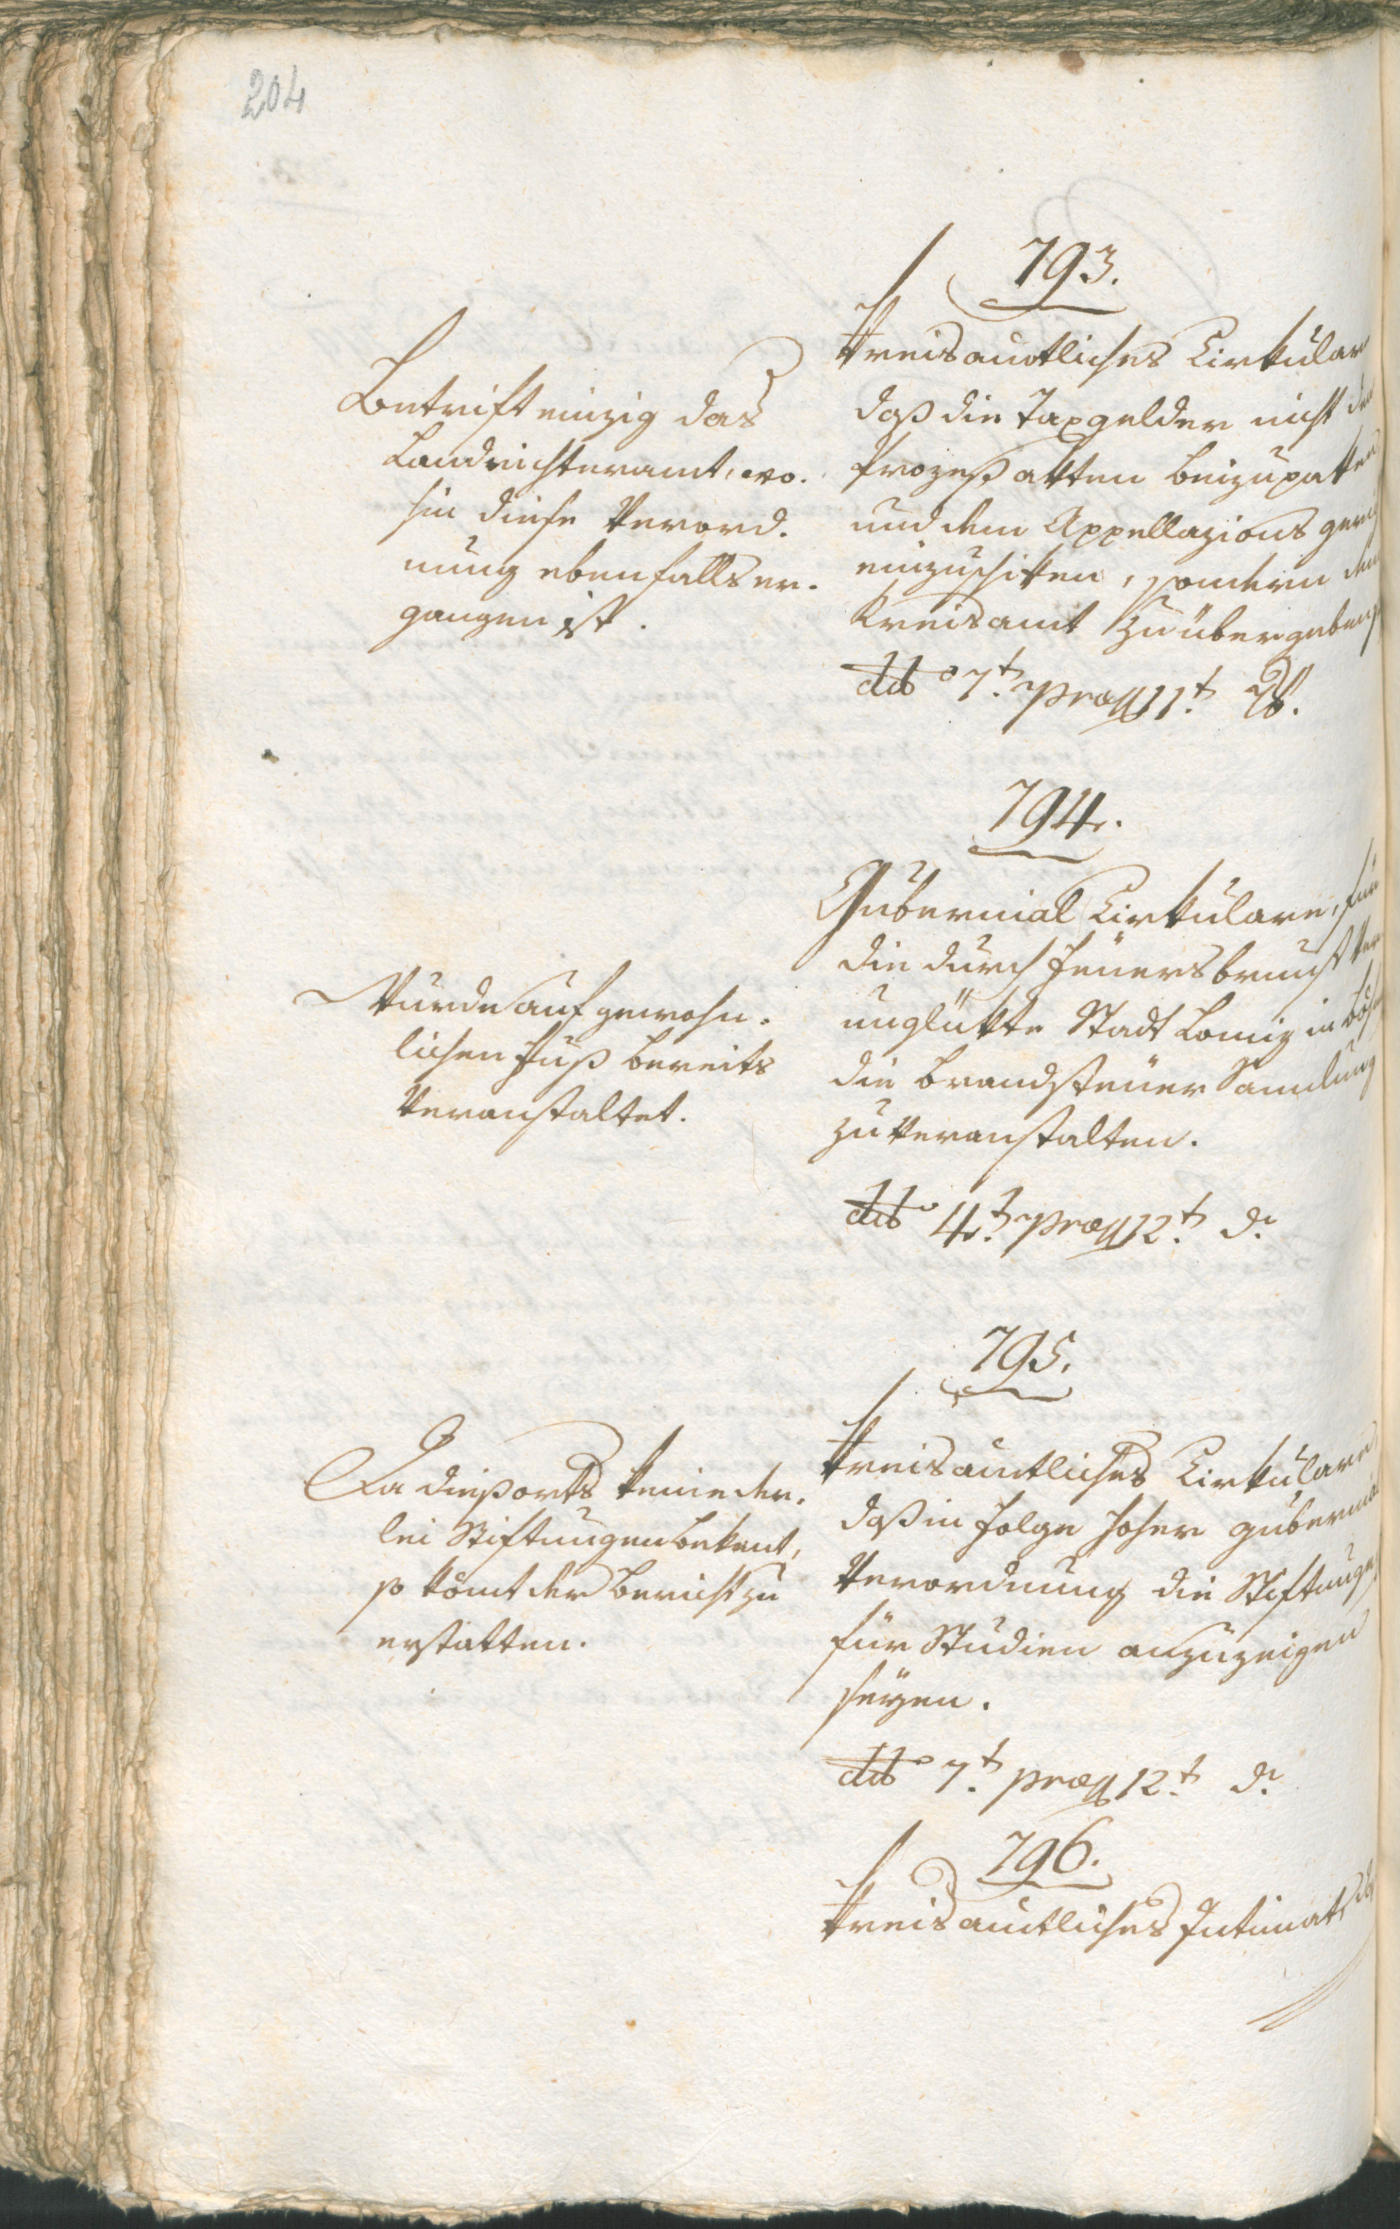 204
793.
Kreisamtliches Cirkulare
daß die Taxgelder nicht den
Prozeßakten beizupaken
und dem Appellazions
einzuschiken, sondern dem
Kreisamt zu übergeben
ddo 7t. præs 11t. 8br.
Betrift einzig das
Landrichteramt, wo-
hin diese Verord-
nung ebenfalls er-
gangen ist.
794.
Gubernial Cirkulare, für
die durch Feuersbrunst ver
unglükte Stadt Lomiz in
die Brandsteuer Samlung
zu veranstalten.
ddo 4t. præs 12t. d.
Wurde auf gewohn-
lichen Fuß bereits
veranstaltet.
795.
Kreisämtliches Cirkulare
daß in Folge hoher
Verordnung die Stiftungen
für Studien anzuzeigen
seyen.
ddo 7t. præs 12t. d.
Da dießorts keinerlei-
lei Stiftungen bekant,
so kömt der Bericht zu
erstatten.
796.
Kreisämtliches Intimat,